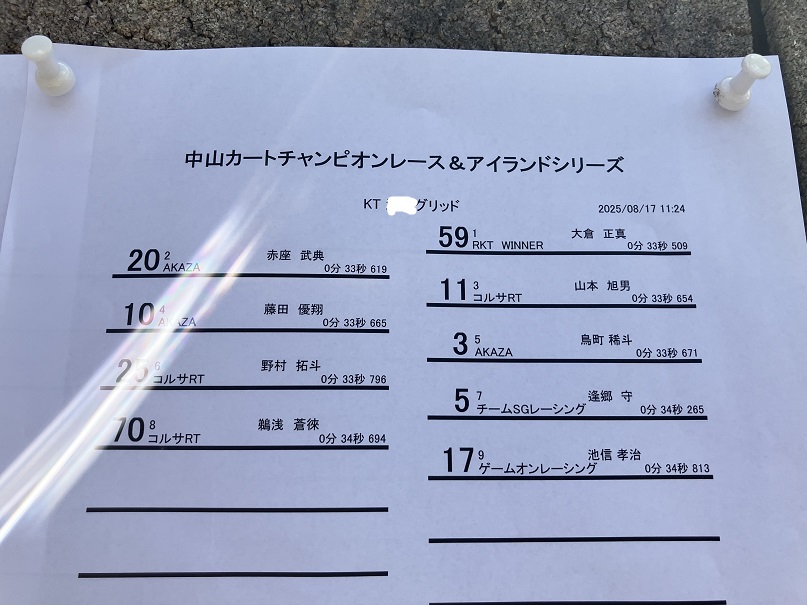 中山カートチャンピオンレース&アイランドシリーズ
KT グリッド
2025/08/17 11:24
59 1 大倉 正真
RKT WINNER 0分 33秒 509
20 2 赤座 武典
AKAZA 0分 33秒 619
11 3 山本 旭男
コルサRT 0分 33秒 654
10 4 藤田 優翔
AKAZA 0分 33秒 665
3 5 鳥町 稀斗
AKAZA 0分 33秒 671
25 6 野村 拓斗
コルサRT 0分 33秒 796
5 7 逢郷 守
チームSGレーシング 0分 34秒 265
70 8 鵜浅 蒼徠
コルサRT 0分 34秒 694
17 9 池信 孝治
ゲームオンレーシング 0分 34秒 813